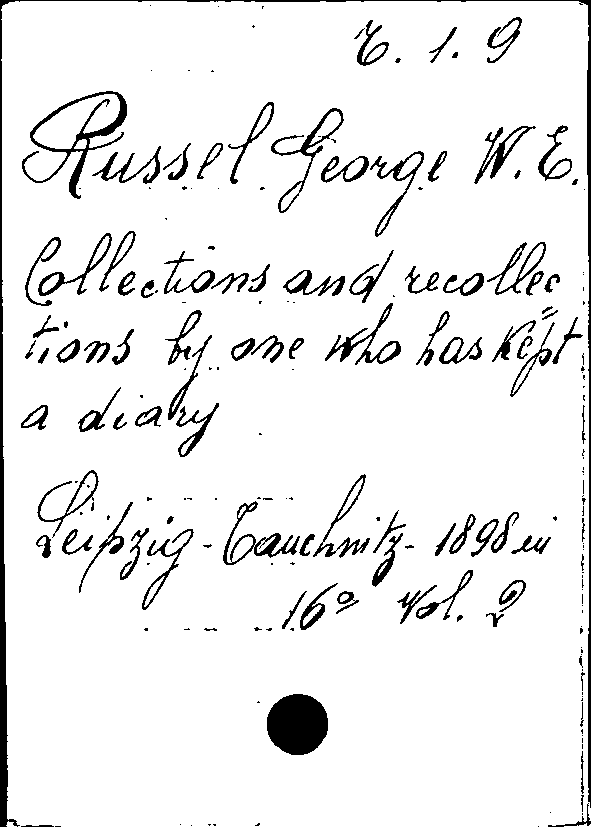 E. 1. 9
Russel George W. E.
Collections and recollec=
tions by one who has kept
a diary
Leipzig - Tauchnitz - 1898 in
16º Vol. 2